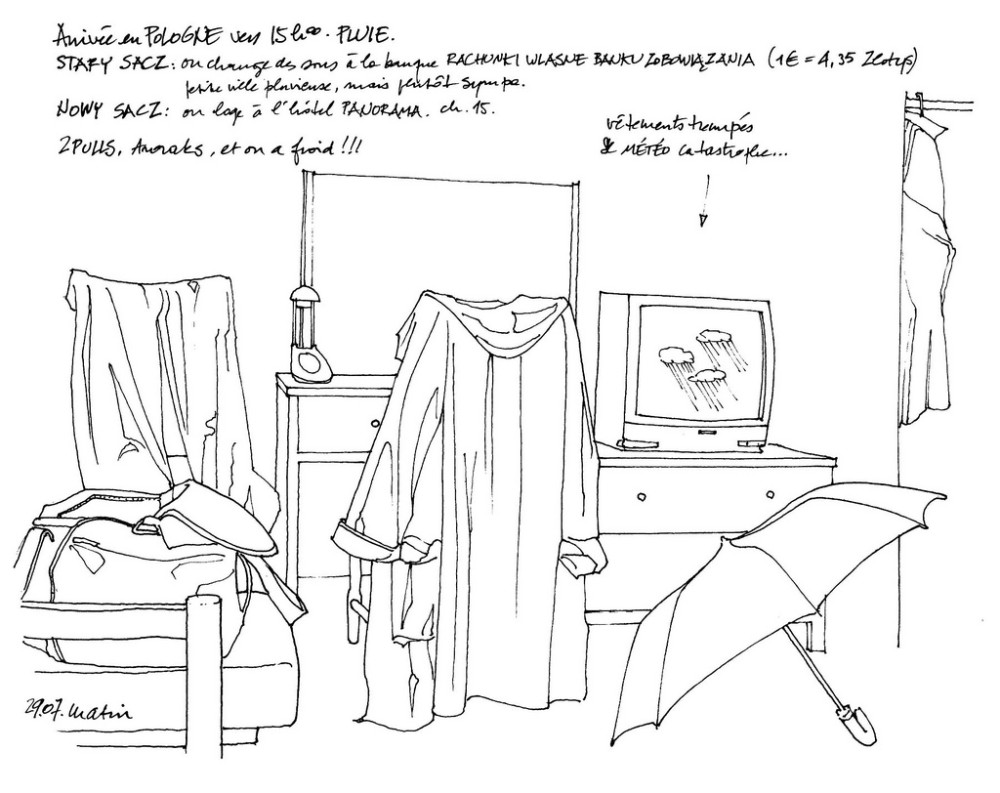 Arrivée en POLOGNE vers 15h00. PLUIE.
STARY SACZ: on change des sous à la banque RACHUNKI WLASNE BANKU ZOBOWIĄZANIA (1€ = 4,35 Zlotys)
petite ville pluvieuse, mais plutôt sympa.
NOWY SACZ: on loge à l'hôtel PANORAMA. ch. 15.
2 PULLS, Anoraks, et on a froid!!!
vêtements trempés
& MÉTÉO catastrophe...
29.07. Matin